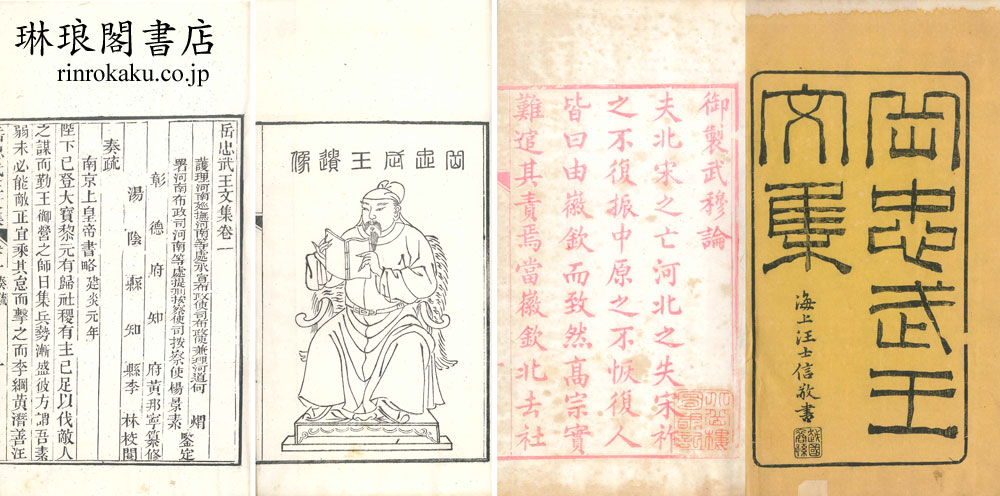 琳琅閣書店
rinrokaku.co.jp
岳忠武王
文集
海上汪士信敬書
御製武穆論
夫北宋之亡河北之失宋祚
之不復振中原之不恢復人
皆曰由徽欽而致然高宗實
難逭其責焉當徽欽北去社
岳忠武王遺像
岳忠武王文集卷一
護理河南巡撫河南等處承宣布政使司布政使兼理河道何煟
署河南布政司河南等處提刑按察使司按察使楊景素鑒定
彰德府知府黃邦寧纂修
湯陰縣知縣李林校閱
奏疏
南京上皇帝書略 建炎元年
陛下已登大寶黎元有歸社稷有主已足以伐敵人
之謀而勤王御營之師日集兵勢漸盛彼方謂吾素
弱未必能敵正宜乘其怠而擊之而李綱黃潛善汪